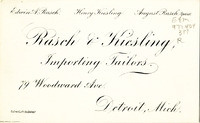 Edwin A. Rasch Henry Kiesling August Rasch
Rasch & Kiesling,
Importing Tailors.
79 Woodward Ave
Detroit, Mich.